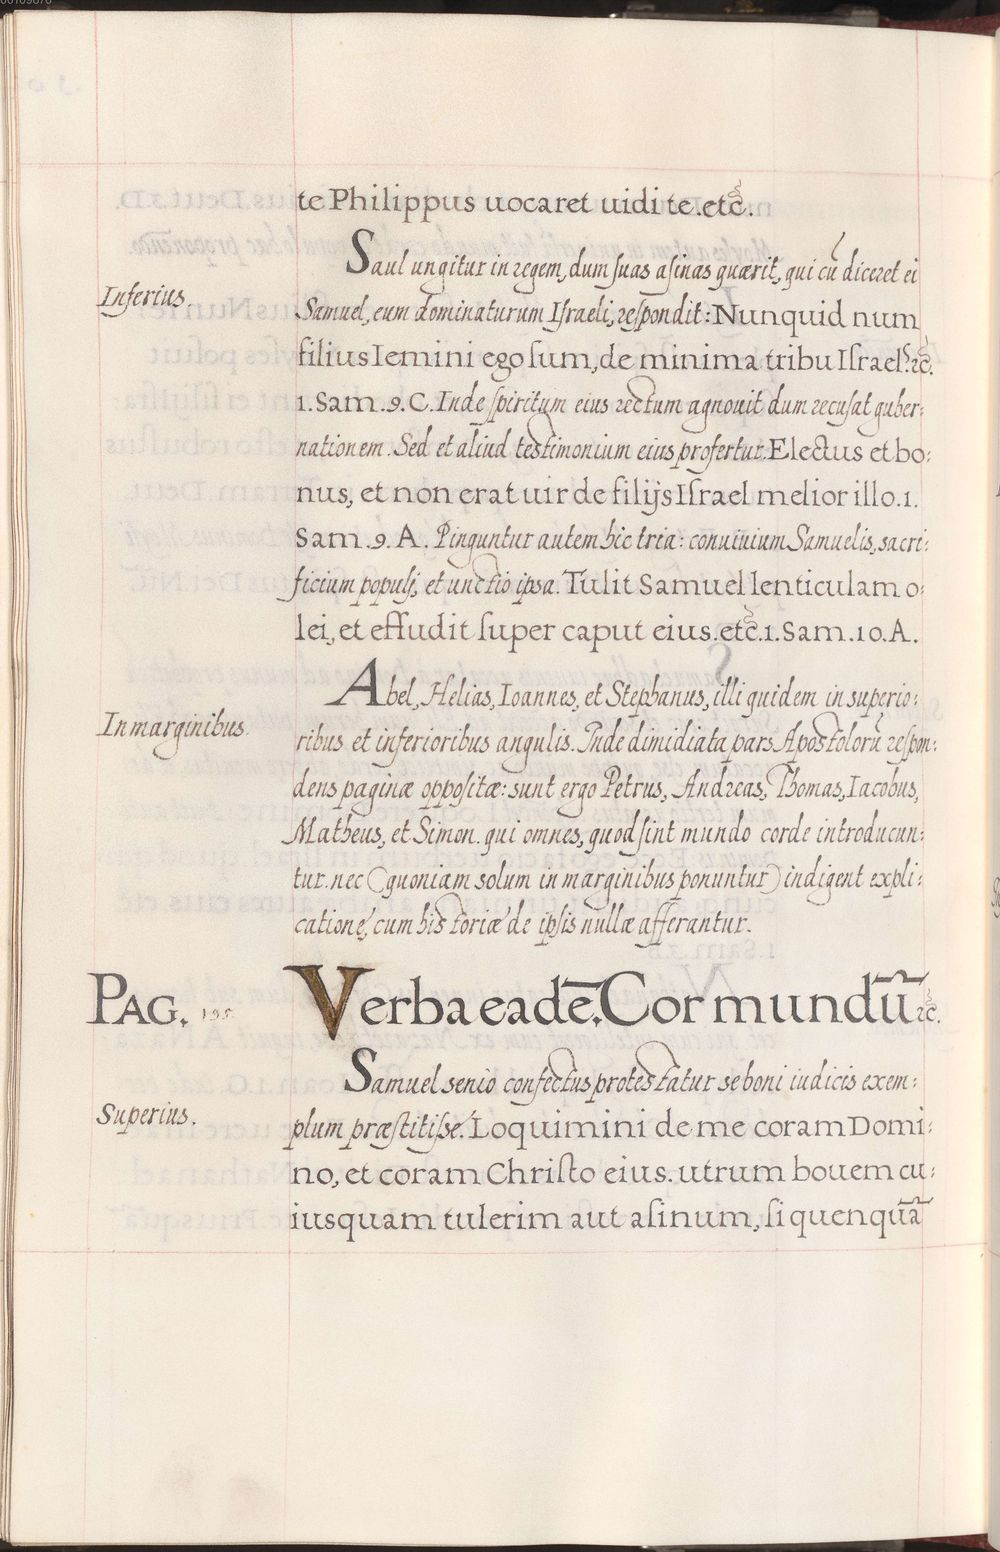 te Philippus uocaret uidi te. etc̃.
Saul ungitur in regem, dum suas asinas quærit, qui cũ diceret ei
Inferius.
Samuel, eum dominaturum Israeli, respondit: Nunquid num
filius Iemini ego sum, de minima tribu Israel? ꝛc̃.
1. Sam. 9. C. Inde spiritum eius rectum agnouit dum recusat guber:
nationem. Sed et aliud testimonium eius profertur. Electus et bo:
nus, et non erat uir de filijs Israel melior illo. 1.
Sam. 9. A. Pinguntur autem hic tria: conuiuium Samuelis, sacri:
ficium populi, et unctio ipsa. Tulit Samuel lenticulam o:
lei, et effudit super caput eius. etc̃. 1. Sam. 10. A.
Abel, Helias, Ioannes, et Stephanus, illi quidem in superio:
In marginibus.
ribus et inferioribus angulis. Inde dimidiata pars Apostolorũ respon:
dens paginæ oppositæ: sunt ergo Petrus, Andreas, Thomas, Iacobus,
Matheus, et Simon. qui omnes, quod sint mundo corde introducun:
tur. nec (quoniam solum in marginibus ponuntur) indigent expli:
catione, cum historiæ de ipsis nullæ afferantur.
PAG. 195.
Verba eadẽ. Cor mundũ ꝛc̃.
Samuel senio confectus protestatur se boni iudicis exem:
Superius.
plum præstitisse. Loquimini de me coram Domi:
no, et coram Christo eius. utrum bouem cu:
iusquam tulerim aut asinum, si quenquã